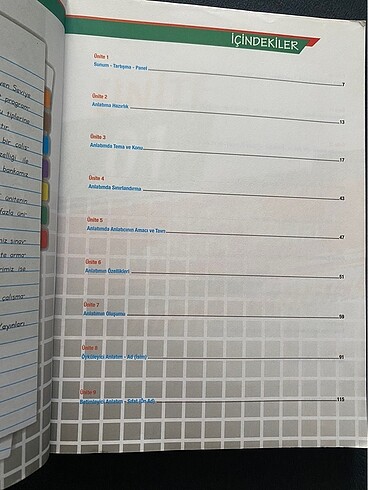 İÇİNDEKİLER
Ünite 1
Sunum - Tartışma - Panel 7
Ünite 2
Anlatıma Hazırlık 13
Ünite 3
Anlatımda Tema ve Konu 17
Ünite 4
Anlatımda Sınırlandırma 43
Ünite 5
Anlatımda Anlatıcının Amacı ve Tavrı 47
Ünite 6
Anlatımın Özellikleri 51
Ünite 7
Anlatımın Oluşumu 59
Ünite 8
Öyküleyici Anlatım - Ad (İsim) 91
Ünite 9
Betimleyici Anlatım - Sıfat (Ön Ad) 115
ven Seviye
program
u tiplerine
tir.
bir çalış-
zelliği ile
bankamız
ünitenin
fazla
niz sınav-
te
rimiz ise
çalışma
Yayınları